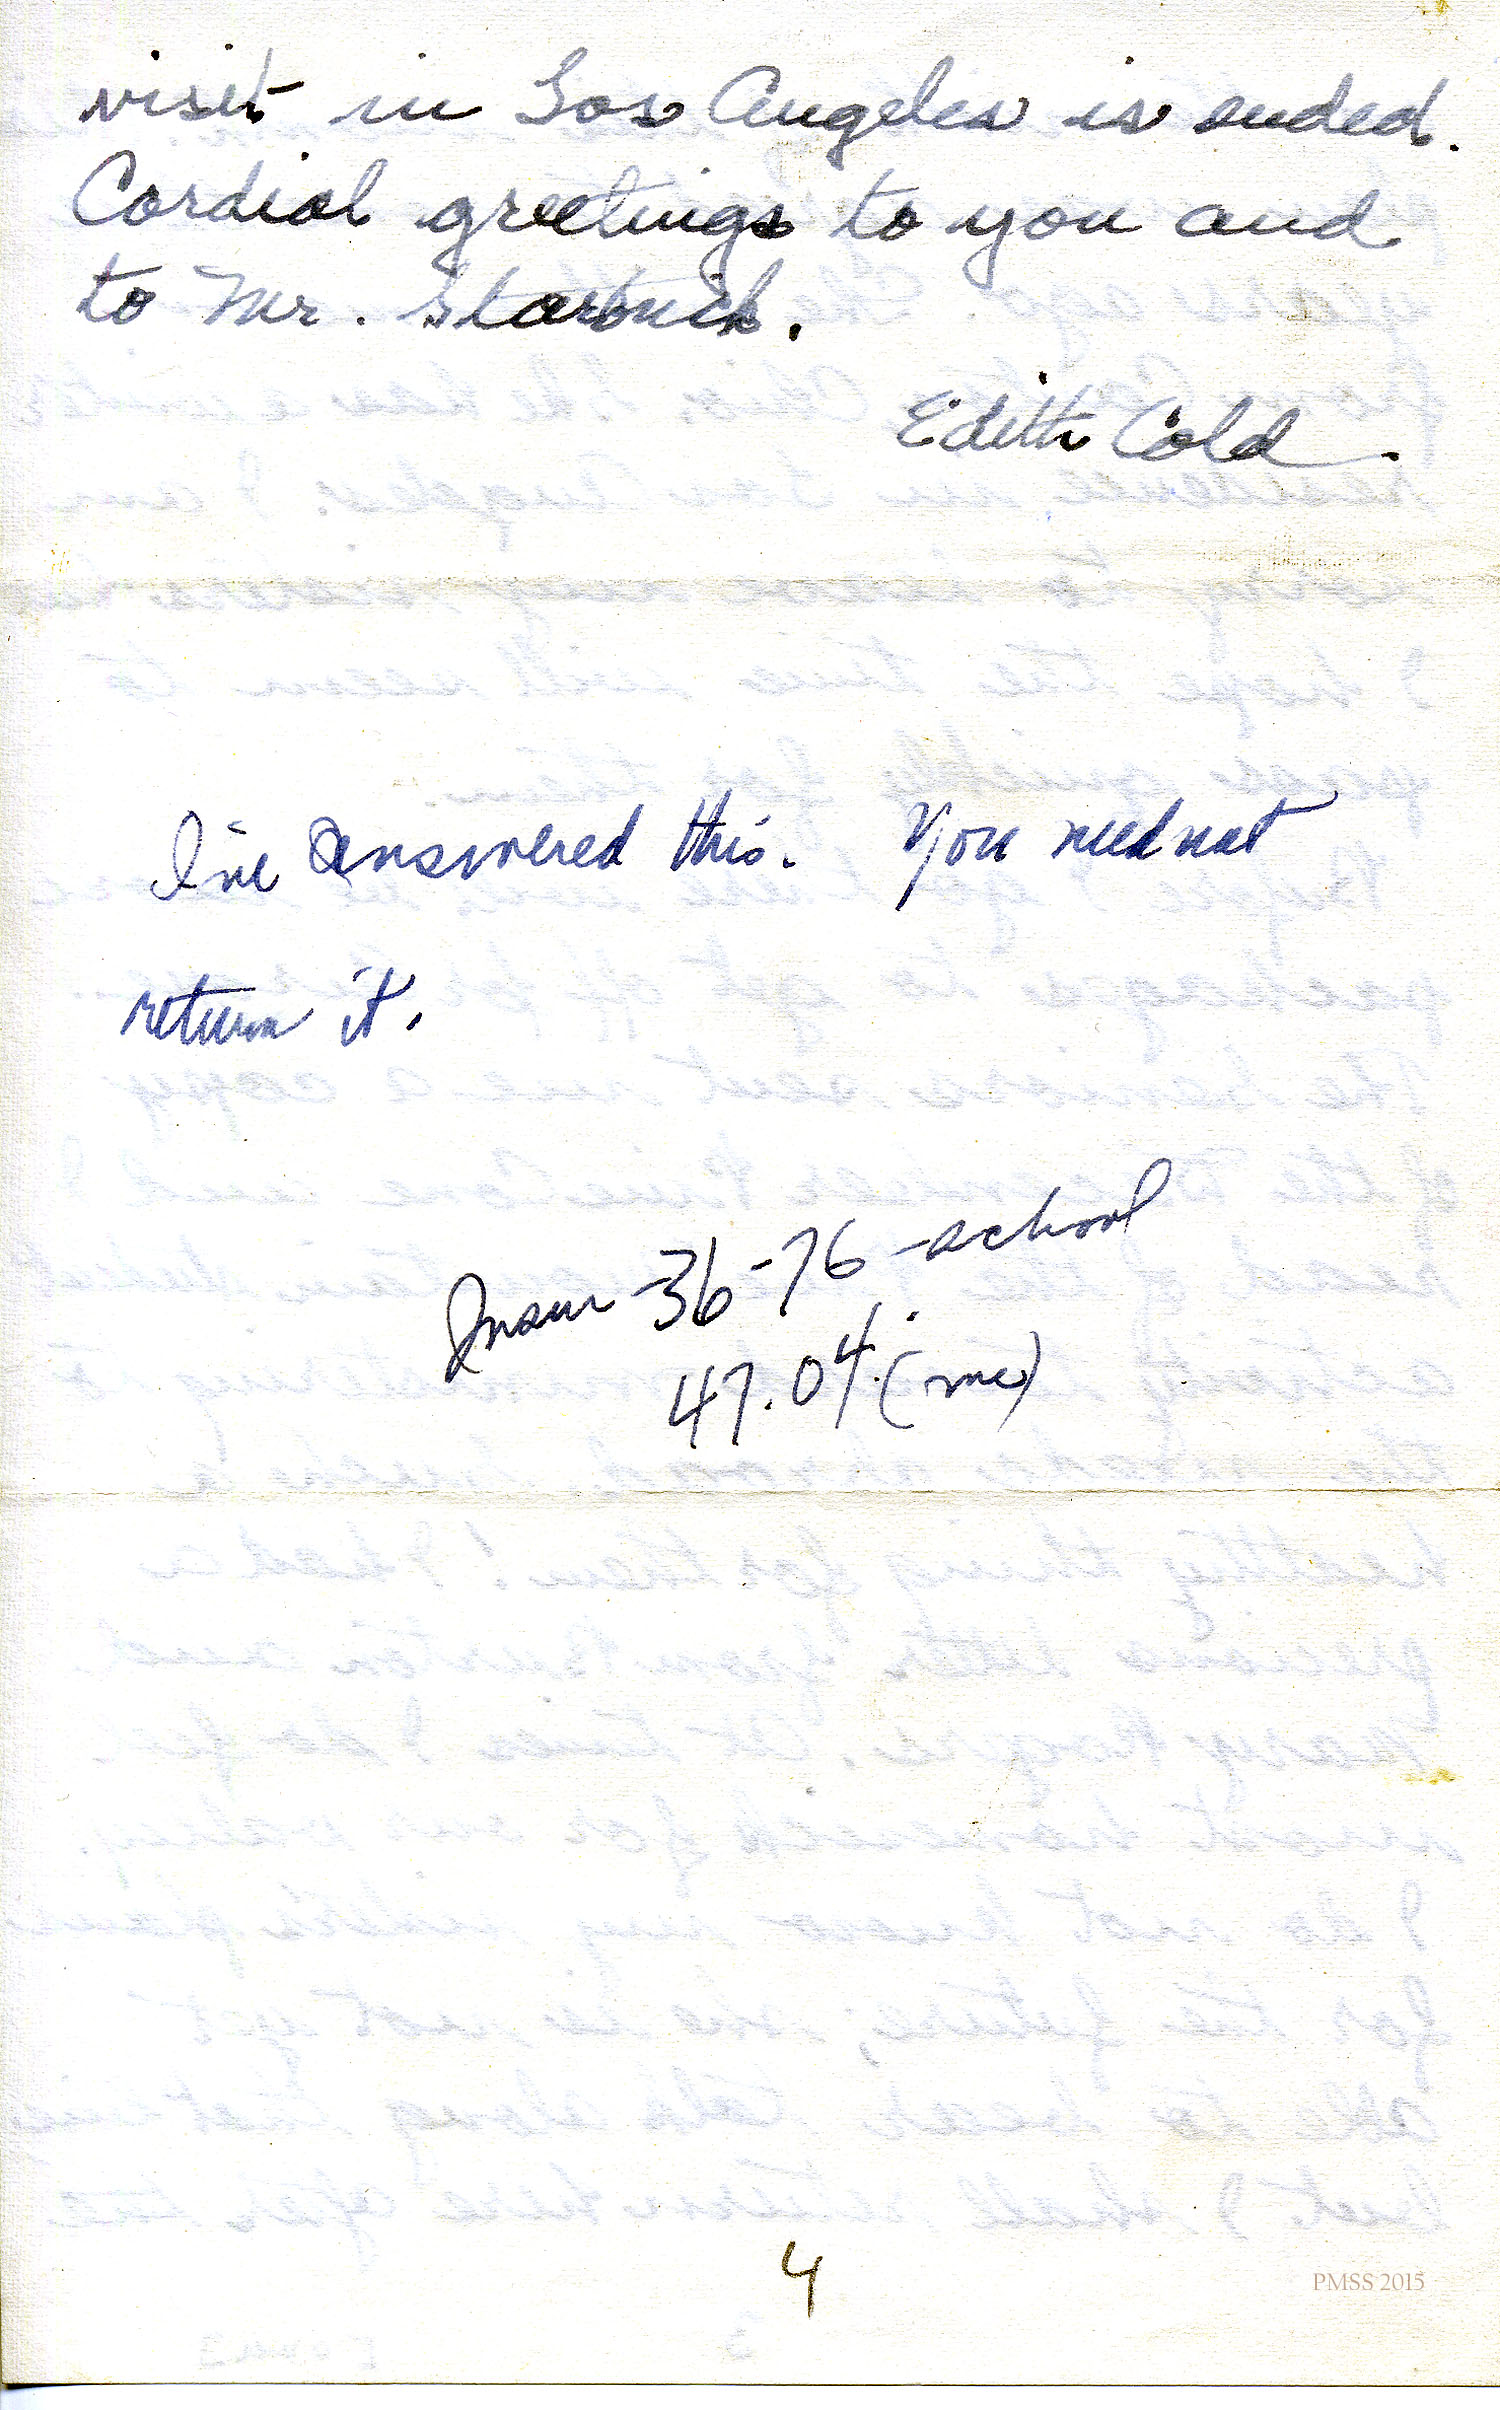 visit in Los Angeles is ended.
Cordial greetings to you and
to Mr. Starbuck.
Edith Cold.
I've answered this. You need not
return it.
Insur - 36-76 - school
47.04. (me)
4
PMSS 2015